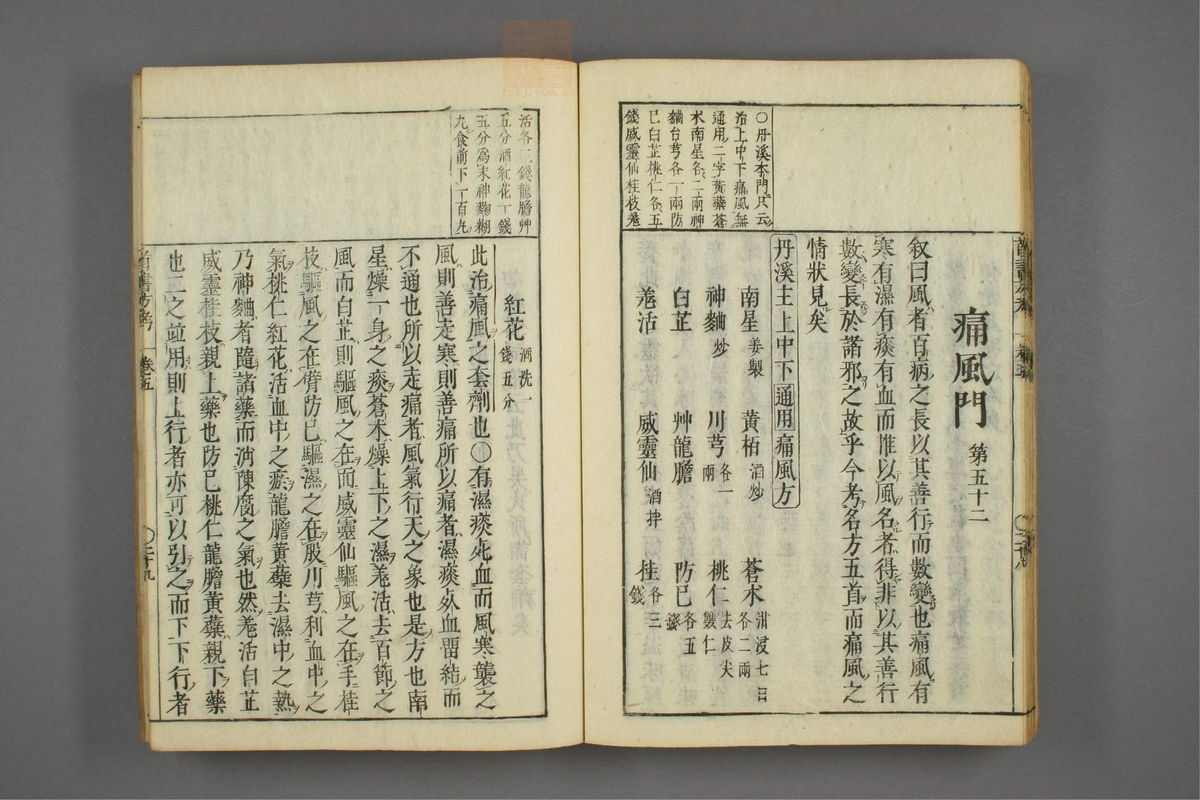 〇丹溪本門只云
治上中下痛風無
通用二字黃蘗蒼
朮南星各二兩神
麯台芎各一兩防
已白芷桃仁各五
錢威靈仙桂枝羌
痛風門 第五十二
叙曰風者百病之長以其善行而數變也痛風有
寒有濕有痰有血而惟以風名者得非以其善行
數變長於諸邪之故乎今考名方五首而痛風之
情狀見矣
丹溪主上中下通用痛風方
南星 姜製 黃栢 酒炒 蒼朮 泔浸七日各二兩
神麯 炒 川芎 各一兩 桃仁 去皮尖
白芷 艸龍膽 防已 各五錢
羌活 威靈仙 酒拌 桂 各三錢
活各三錢龍膽艸
五分酒紅花一錢
五分爲末神麯糊
丸食前下一百丸
紅花 酒洗一錢五分
此治痛風之套劑也〇有濕痰死血而風寒襲之
風則善走寒則善痛所以痛者濕痰死血留結而
不通也所以走痛者風氣行天之象也是方也南
星燥一身之痰蒼朮燥上下之濕羌活去百節之
風而白芷則驅風之在面威靈仙驅風之在手桂
枝驅風之在臂防已驅濕之在股川芎利血中之
氣桃仁紅花活血中之瘀龍膽黃蘗去濕中之熱
乃神麯者隨諸藥而消陳腐之氣也然羌活白芷
威靈桂枝親上藥也防已桃仁龍膽黃蘗親下藥
也二之竝用則上行者亦可以引之而下下行者